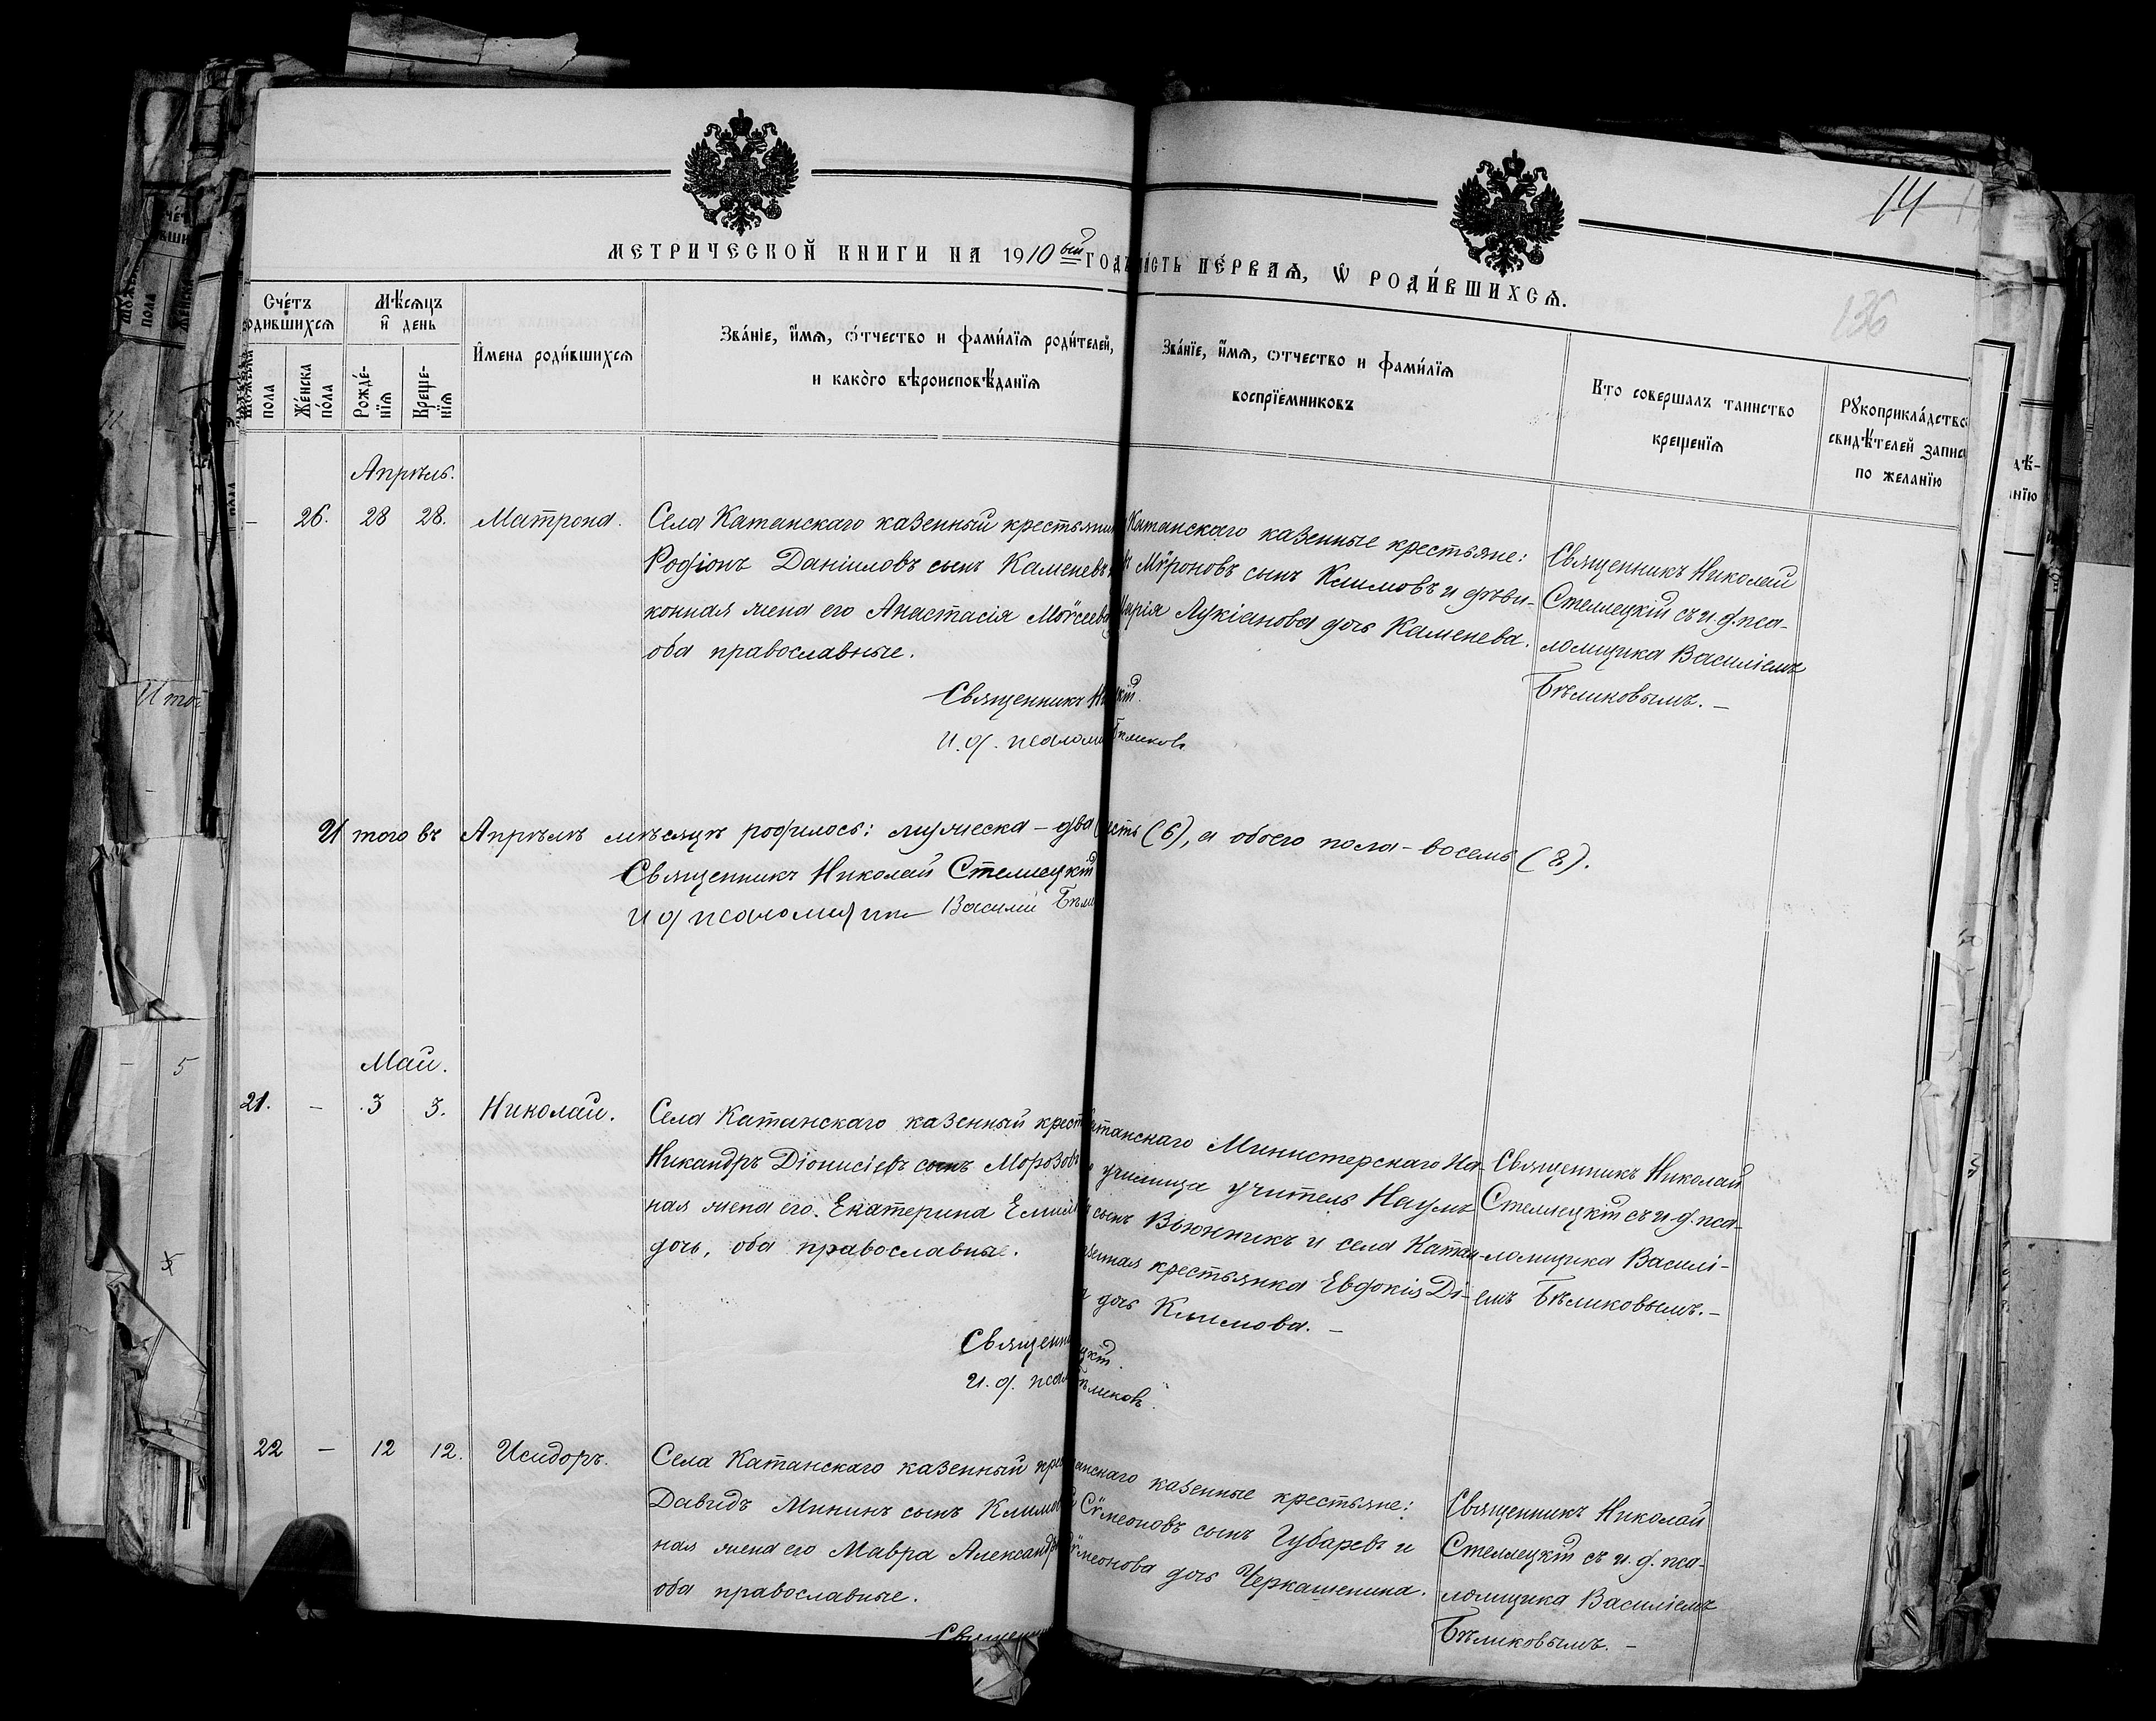 14
136
МЕТРИЧЕСКОЙ КНИГИ НА 1910ый ГОДЪ ЧАСТЬ ПЕ́РВАѦ, Ѡ РОДИ́ВШИХСѦ.
Сче́тъ родившихсѧ
Мꙋжеска пола
Же́нска по́ла
Мѣ́сѧцъ и день
Рожде́нїѧ
Креще́нїѧ
И҆мена роди́вшихсѧ
Зва́нїе, и҆́мѧ, ѻ҆́тчество и фами́лїѧ роди́телей,
и како̀го вѣроисповѣ́данїѧ
Зва́нїе, и҆́мѧ, ѻтчество и фами́лїѧ
воспрїе́мниковъ
Кто соверша́лъ таинство
крещенїѧ
Рꙋкоприкла́дство
свидѣ́телей записи
по жела́нїю
Апрѣль.
– 26. 28 28. Матрона.
Села Катанскаго казенный крестьянин
Родіонъ Даніиловъ сынъ Каменевъ
конная жена его Анастасія Моѵсеева
оба православные.
Катанскаго казенные крестьяне:
Мѵроновъ сынъ Климовъ и дѣви-
Марія Лукіанова дочь Каменева.
Священникъ Николай
Стеллецкій съ и. д. пса-
ломщика Василіемъ
Бѣликовымъ. –
Священникъ Н цкій.
И. д. псалом Бѣликовъ
Итого въ Апрѣлѣ мѣсяцѣ родилось: мужеска – два сть (6), а обоего пола – восемь (8).
Священникъ Николай Стеллецкій
И д псаломщика Василій Бѣли
Май.
21. – 3 3. Николай.
Села Катанскаго казенный крест
Никандръ Діонисіевъ сынъ Морозовъ
ная жена его Екатерина Емил
дочь, оба православные.
атанскаго Министерскаго На-
училища учитель Наумъ
сынъ Вьюнникъ и села Катан-
зенная крестьянка Евдокія Ді-
дочь Климова. –
Священникъ Николай
Стеллецкій съ и. д. пса-
ломщика Василі-
емъ Бѣликовымъ. –
Священни цкій.
И. д. псал ѣликовъ.
22 – 12 12. Исидоръ.
Села Катанскаго казенный кре
Давидъ Мининъ сынъ Климов
ная жена его Мавра Александр
оба православные.
анскаго казенные крестьяне:
Сѵмеоновъ сынъ Губаревъ и
Сѵмеонова дочь Черкашенина.
Священникъ Николай
Стеллецкій съ и. д. пса-
ломщика Василіемъ
Бѣликовымъ. –
Священни